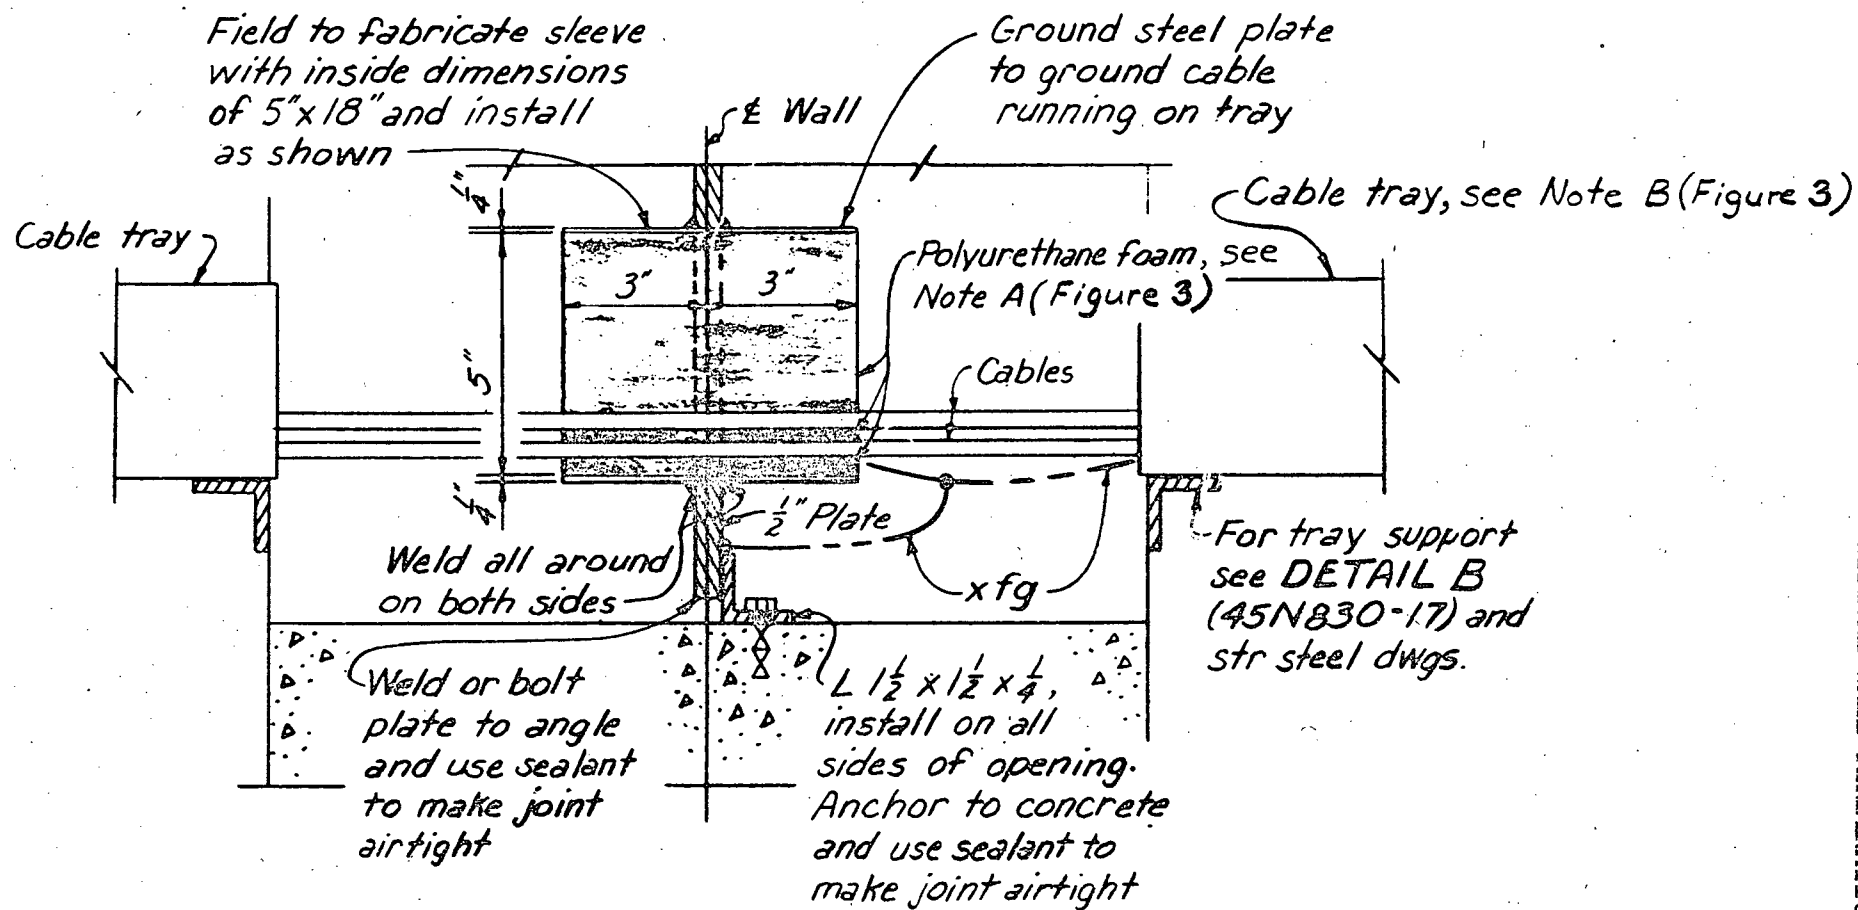 Field to fabricate sleeve
with inside dimensions
of 5"x18" and install
as shown
Ground steel plate
to ground cable
running on tray
℄ Wall
Cable tray, see Note B (Figure 3)
Cable tray
1/4"
Polyurethane foam, see
Note A (Figure 3)
3"
3"
5"
Cables
1/4"
1/2" Plate
Weld all around
on both sides
xfg
For tray support
see DETAIL B
(45N830-17) and
str steel dwgs.
Weld or bolt
plate to angle
and use sealant
to make joint
airtight
L 1 1/2 x 1 1/2 x 1/4,
install on all
sides of opening.
Anchor to concrete
and use sealant to
make joint airtight